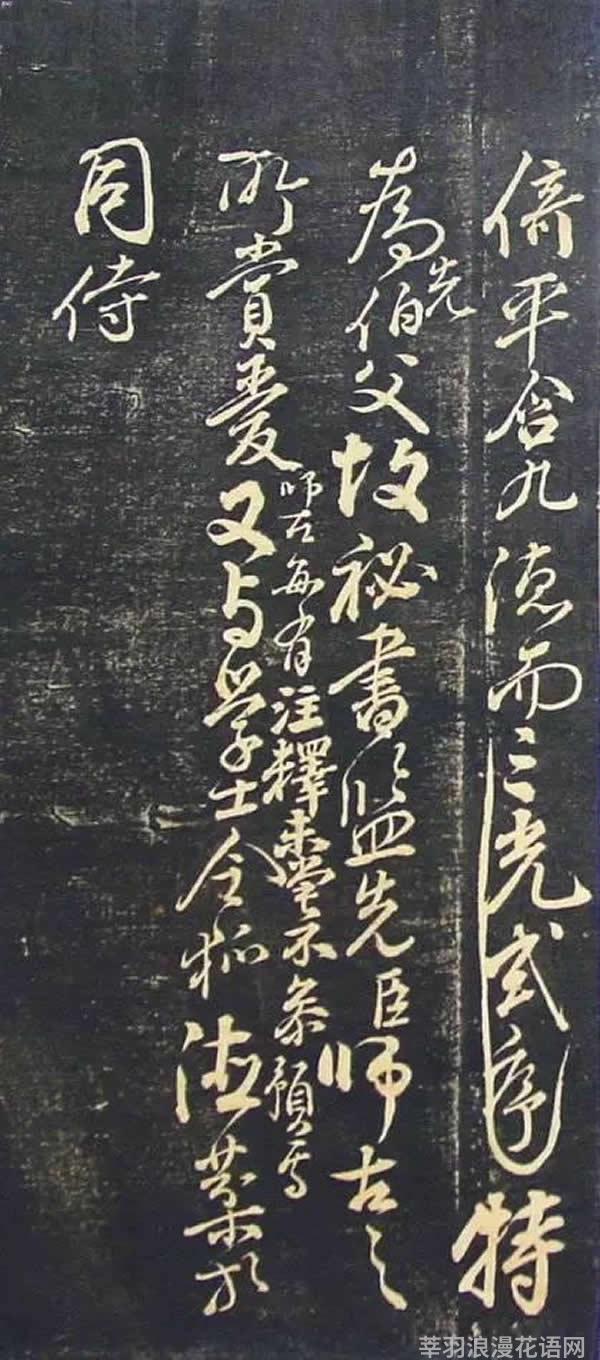 平合九德而三光式序特
為先伯父故祕書監先臣師古之
師古每有注釋未嘗不參預焉
所賞愛又与學士令狐德棻於
同侍
莘羽浪漫花语网